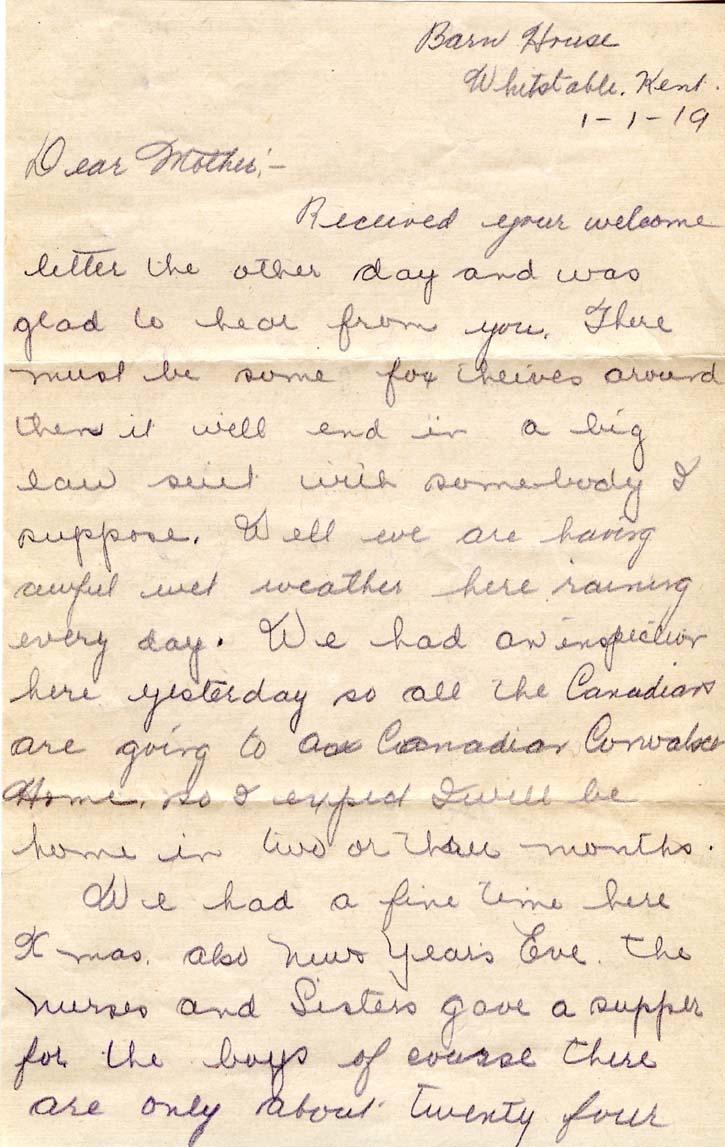 Barn House
Whitstable. Kent.
1-1-19
Dear Mother:-
Received your welcome
letter the other day and was
glad to hear from you. There
must be some fox theives around
then it will end in a big
law suit with somebody I
suppose. Well we are having
awful wet weather here raining
every day. We had an inspection
here yesterday so all the Canadians
are going to a Canadian Convalscent
Home. so I expect I will be
home in two or three months.
We had a fine time here
Xmas. also New Years Eve. the
nurses and Sisters gave a supper
for the boys of course there
are only about twenty four